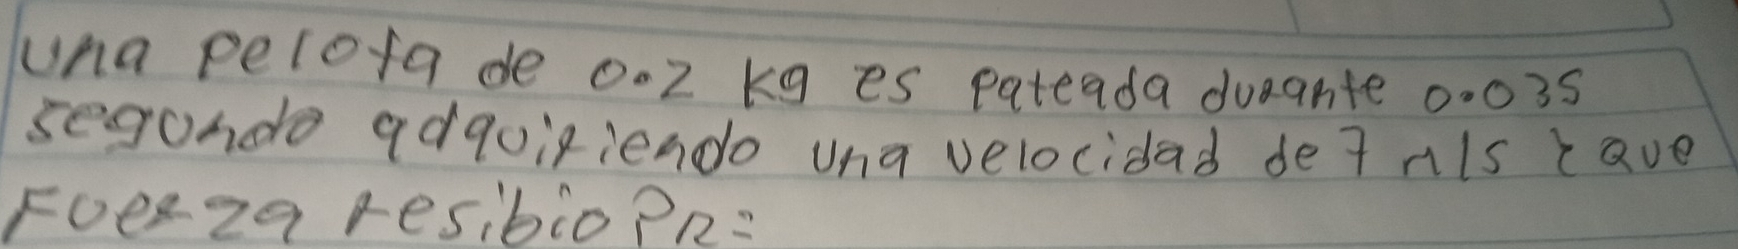 una pelota de 0.2 kg es pateada durante 0.035
segundo adquiriendo una velocidad de 7 m/s ¿ que
Fuerza resibio ? R=